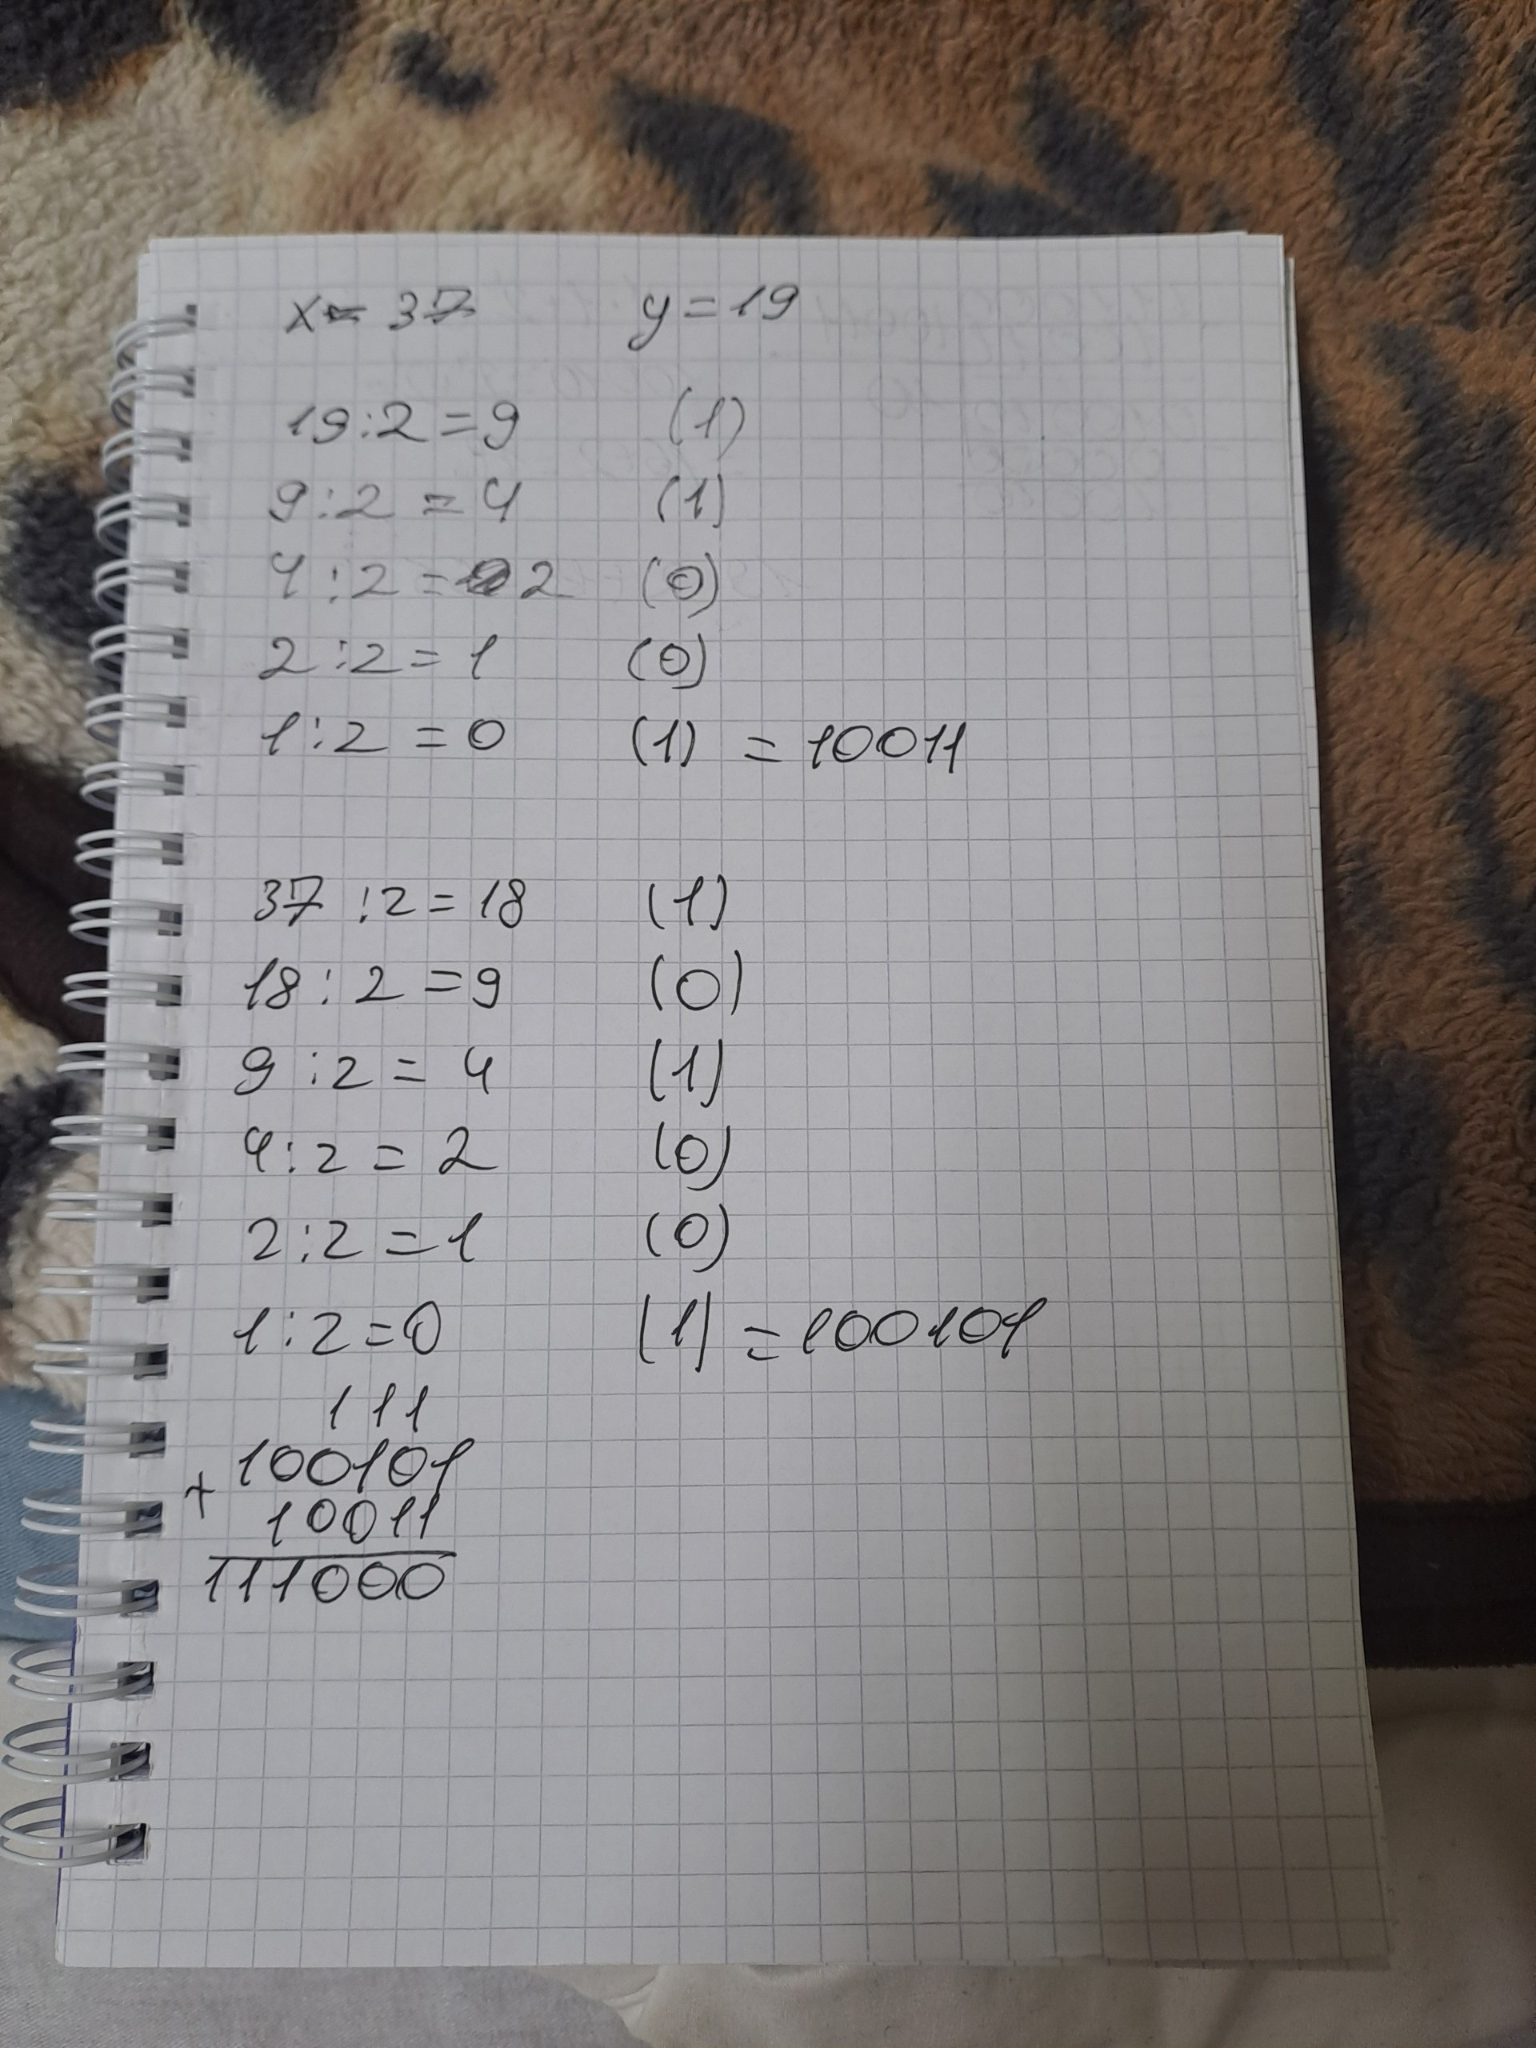 x = 37 y = 19
19:2 = 9 (1)
9:2 = 4 (1)
4:2 = 2 (0)
2:2 = 1 (0)
1:2 = 0 (1) = 10011
37:2 = 18 (1)
18:2 = 9 (0)
9:2 = 4 (1)
4:2 = 2 (0)
2:2 = 1 (0)
1:2 = 0 (1) = 100101
111
100101
+
10011
111000